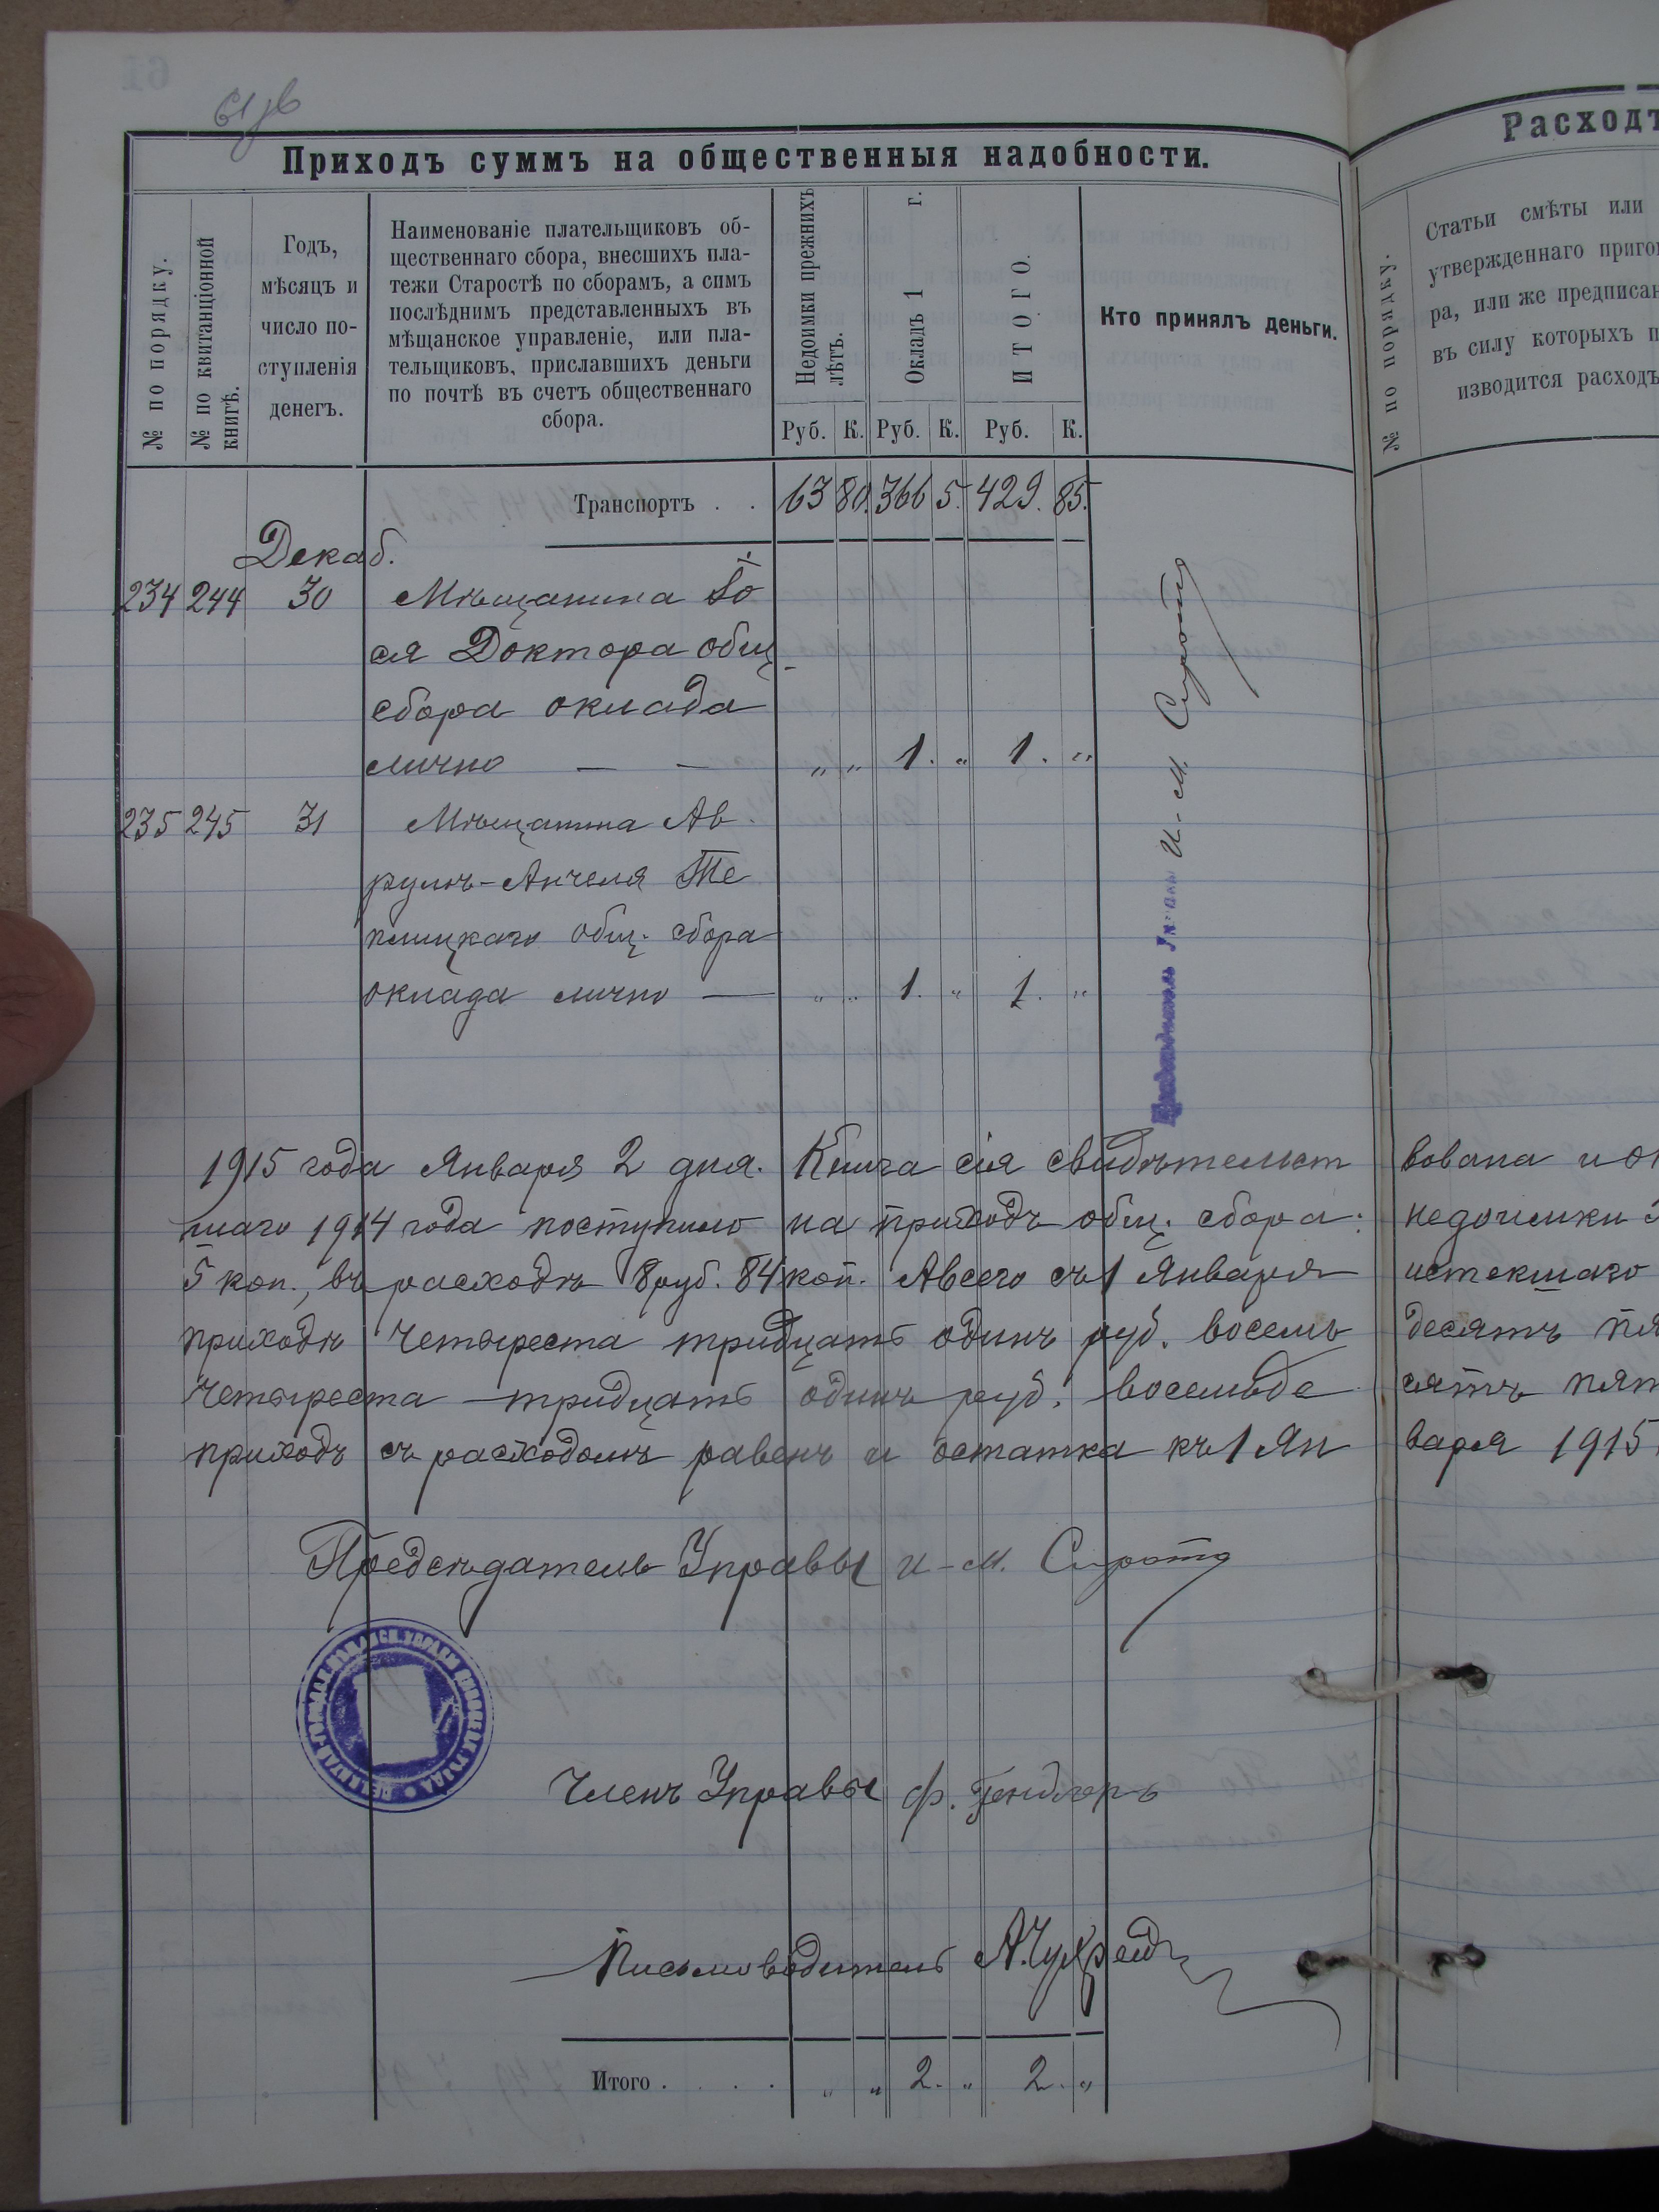 61 об
Приходъ суммъ на общественныя надобности.
№ по порядку.
№ по квитанціонной
книгѣ.
Годъ,
мѣсяцъ и
число по-
ступленія
денегъ.
Наименованіе плательщиковъ об-
щественнаго сбора, внесшихъ пла-
тежи Старостѣ по сборамъ, а симъ
послѣднимъ представленныхъ въ
мѣщанское управленіе, или пла-
тельщиковъ, приславшихъ деньги
по почтѣ въ счетъ общественнаго
сбора.
Недоимки прежнихъ
лѣтъ.
Окладъ 1 г.
ИТОГО.
Кто принялъ деньги.
Руб. К. Руб. К. Руб. К.
Транспортъ . . 63 80. 366 5. 429. 85.
Декаб.
234 244 30 Мѣщанина
ся Доктора общ.
сбора оклада
лично — — „ „ 1. „ 1. „
235 245 31 Мѣщанина Ав
румъ-Анчеля Те
плицкаго общ. сбора
оклада лично — „ „ 1. „ 1. „
Предсѣдатель Управы И-М. Сирота
1915 года Января 2 дня. Книга сія свидѣтельст
шаго 1914 года поступило на приходъ общ. сбора:
5 коп., въ расходѣ 8 руб. 84 коп. А всего съ 1 Января
приходѣ четыреста тридцать одинъ руб. восемь
четыреста тридцать одинъ руб. восемьде
приходъ съ расходомъ равенъ и остатка къ 1 Ян
Предсѣдатель Управы И-М. Сирота
Членъ Управы Ф.
Письмоводитель А.
Итого . . . . „ „ 2. „ 2. „
Расходъ
№ по порядку.
Статьи смѣты или
утвержденнаго приго
ра, или же предписан
въ силу которыхъ п
изводится расходъ
вована и
недоимки
истекшаго
десятъ пя
сятъ пят
варя 1915